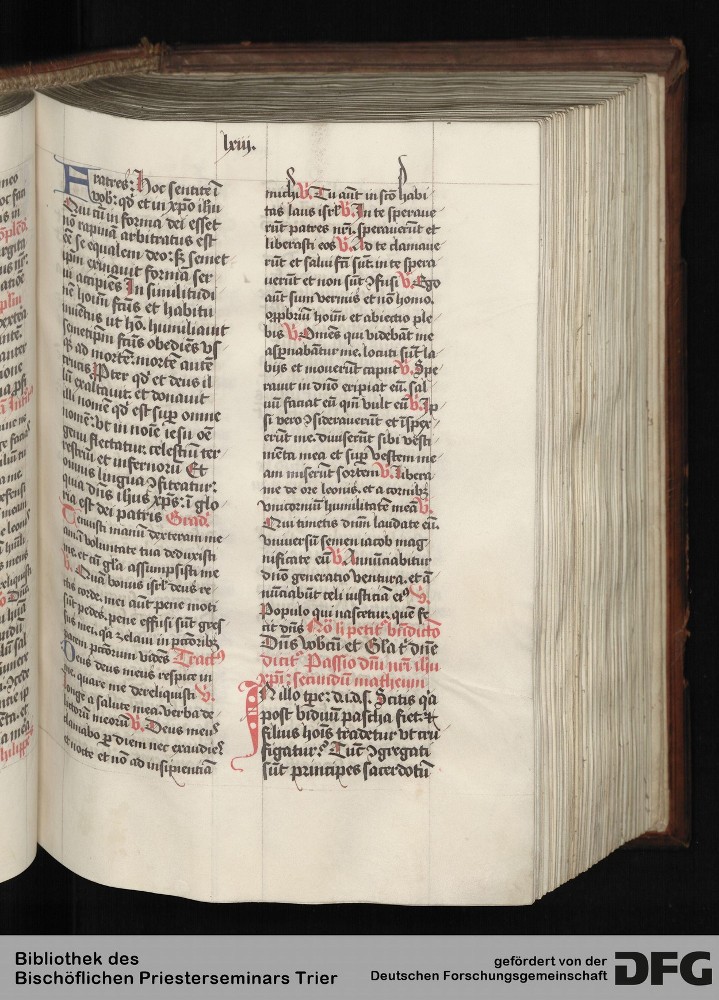 lxiij.
Fratres: Hoc sentite ī
vob᷒: qd̓ et in xp̄o ih̄u
Qui cū in forma dei esset
nō rapinā arbitratus est
ēē se equalem deo: ꝫ semet
ip̄m exinanit formā ser
ui accipiēs In similitudi
nē hoīm fc̄us et habitu
inuētus ut hō. humiliauit
semetip̄m fc̄us obediēs vs
qꝫ ad mortē: mortē autē
crucis Pter qd̓ et deus il
lū exaltauit: et donauit
illi nomē qd̓ est sup̄ omne
nomē: vt in noīe iesu oē
genu flectatur: celestiū ter
restriū et infernorū Et
omnis lingua ꝯfiteatur:
quia dn̄s ih̄us xp̄s: ī glo
ria est dei patris Grad᷒.
Tenuisti manū dexteram me
am. ī voluntate tua deduxisti
me. et cū gl̄a assumpsisti me
V. Quā bonus isrl̓ deus re
ctis corde. mei aūt pene moti
sūt pedes. pene effusi sūt gres
sus mei. q̄a zelaui in pccōribꝫ
pacem pccōrum vidēs Tract᷒
Deus deus meus respice in
me. quare me dereliquisti V.
Longe a salute mea. verba de
lictorū meorū V. Deus me᷒
clamabo p̄ diem nec exaudies
et nocte et nō ad insipientiā
michi V. Tu aūt in sc̄o habi
tas laus isrl̓ V. In te speraue
rūt patres nr̄i. sperauerūt et
liberasti eos V. Ad te clamaue
rūt et salui fc̄i sūt. in te spera
uerūt et non sūt ꝯfusi V. Ego
aūt sum vermis et nō homo.
opprobriū hoīm et abiectio ple
bis V. Omēs qui videbāt me
asp̄nabātur me. locuti sūt la
bijs et mouerūt caput V. Spe
rauit in dn̄o eripiat eū. sal
uū faciat eū qm̄ vult eū V. Ip
si vero ꝯsiderauerūt et ꝯspex
erūt me. diuiserūt sibi vesti
mēta mea et sup̄ vestem me
am miserūt sortem V. Libera
me de ore leonis. et a cornibꝫ
vnicornuū humilitatē meā V.
Qui timetis dn̄m laudate eū.
vniuersū semen iacob mag
nificate eū V. Annūciabitur
dn̄o generatio ventura. et ā
nūciabūt celi iusticiā ei᷒ V.
Populo qui nascetur. quē fe
cit dn̄s Nō li petit̓ bn̄dictō
Dn̄s vobcū et Gla t̓ dn̄e
dicit̓ Passio dn̄i nr̄i ih̄u
xp̄i: secundū matheum.
In illo tp̄e: d. i. d. s. Scitis q̄a
post biduū pascha fiet: ⁊
filius hoīs tradetur vt cru
cifigatur: Tūc ꝯgregati
sūt principes sacerdotū
Bibliothek des
Bischöflichen Priesterseminars Trier
gefördert von der
Deutschen Forschungsgemeinschaft
DFG